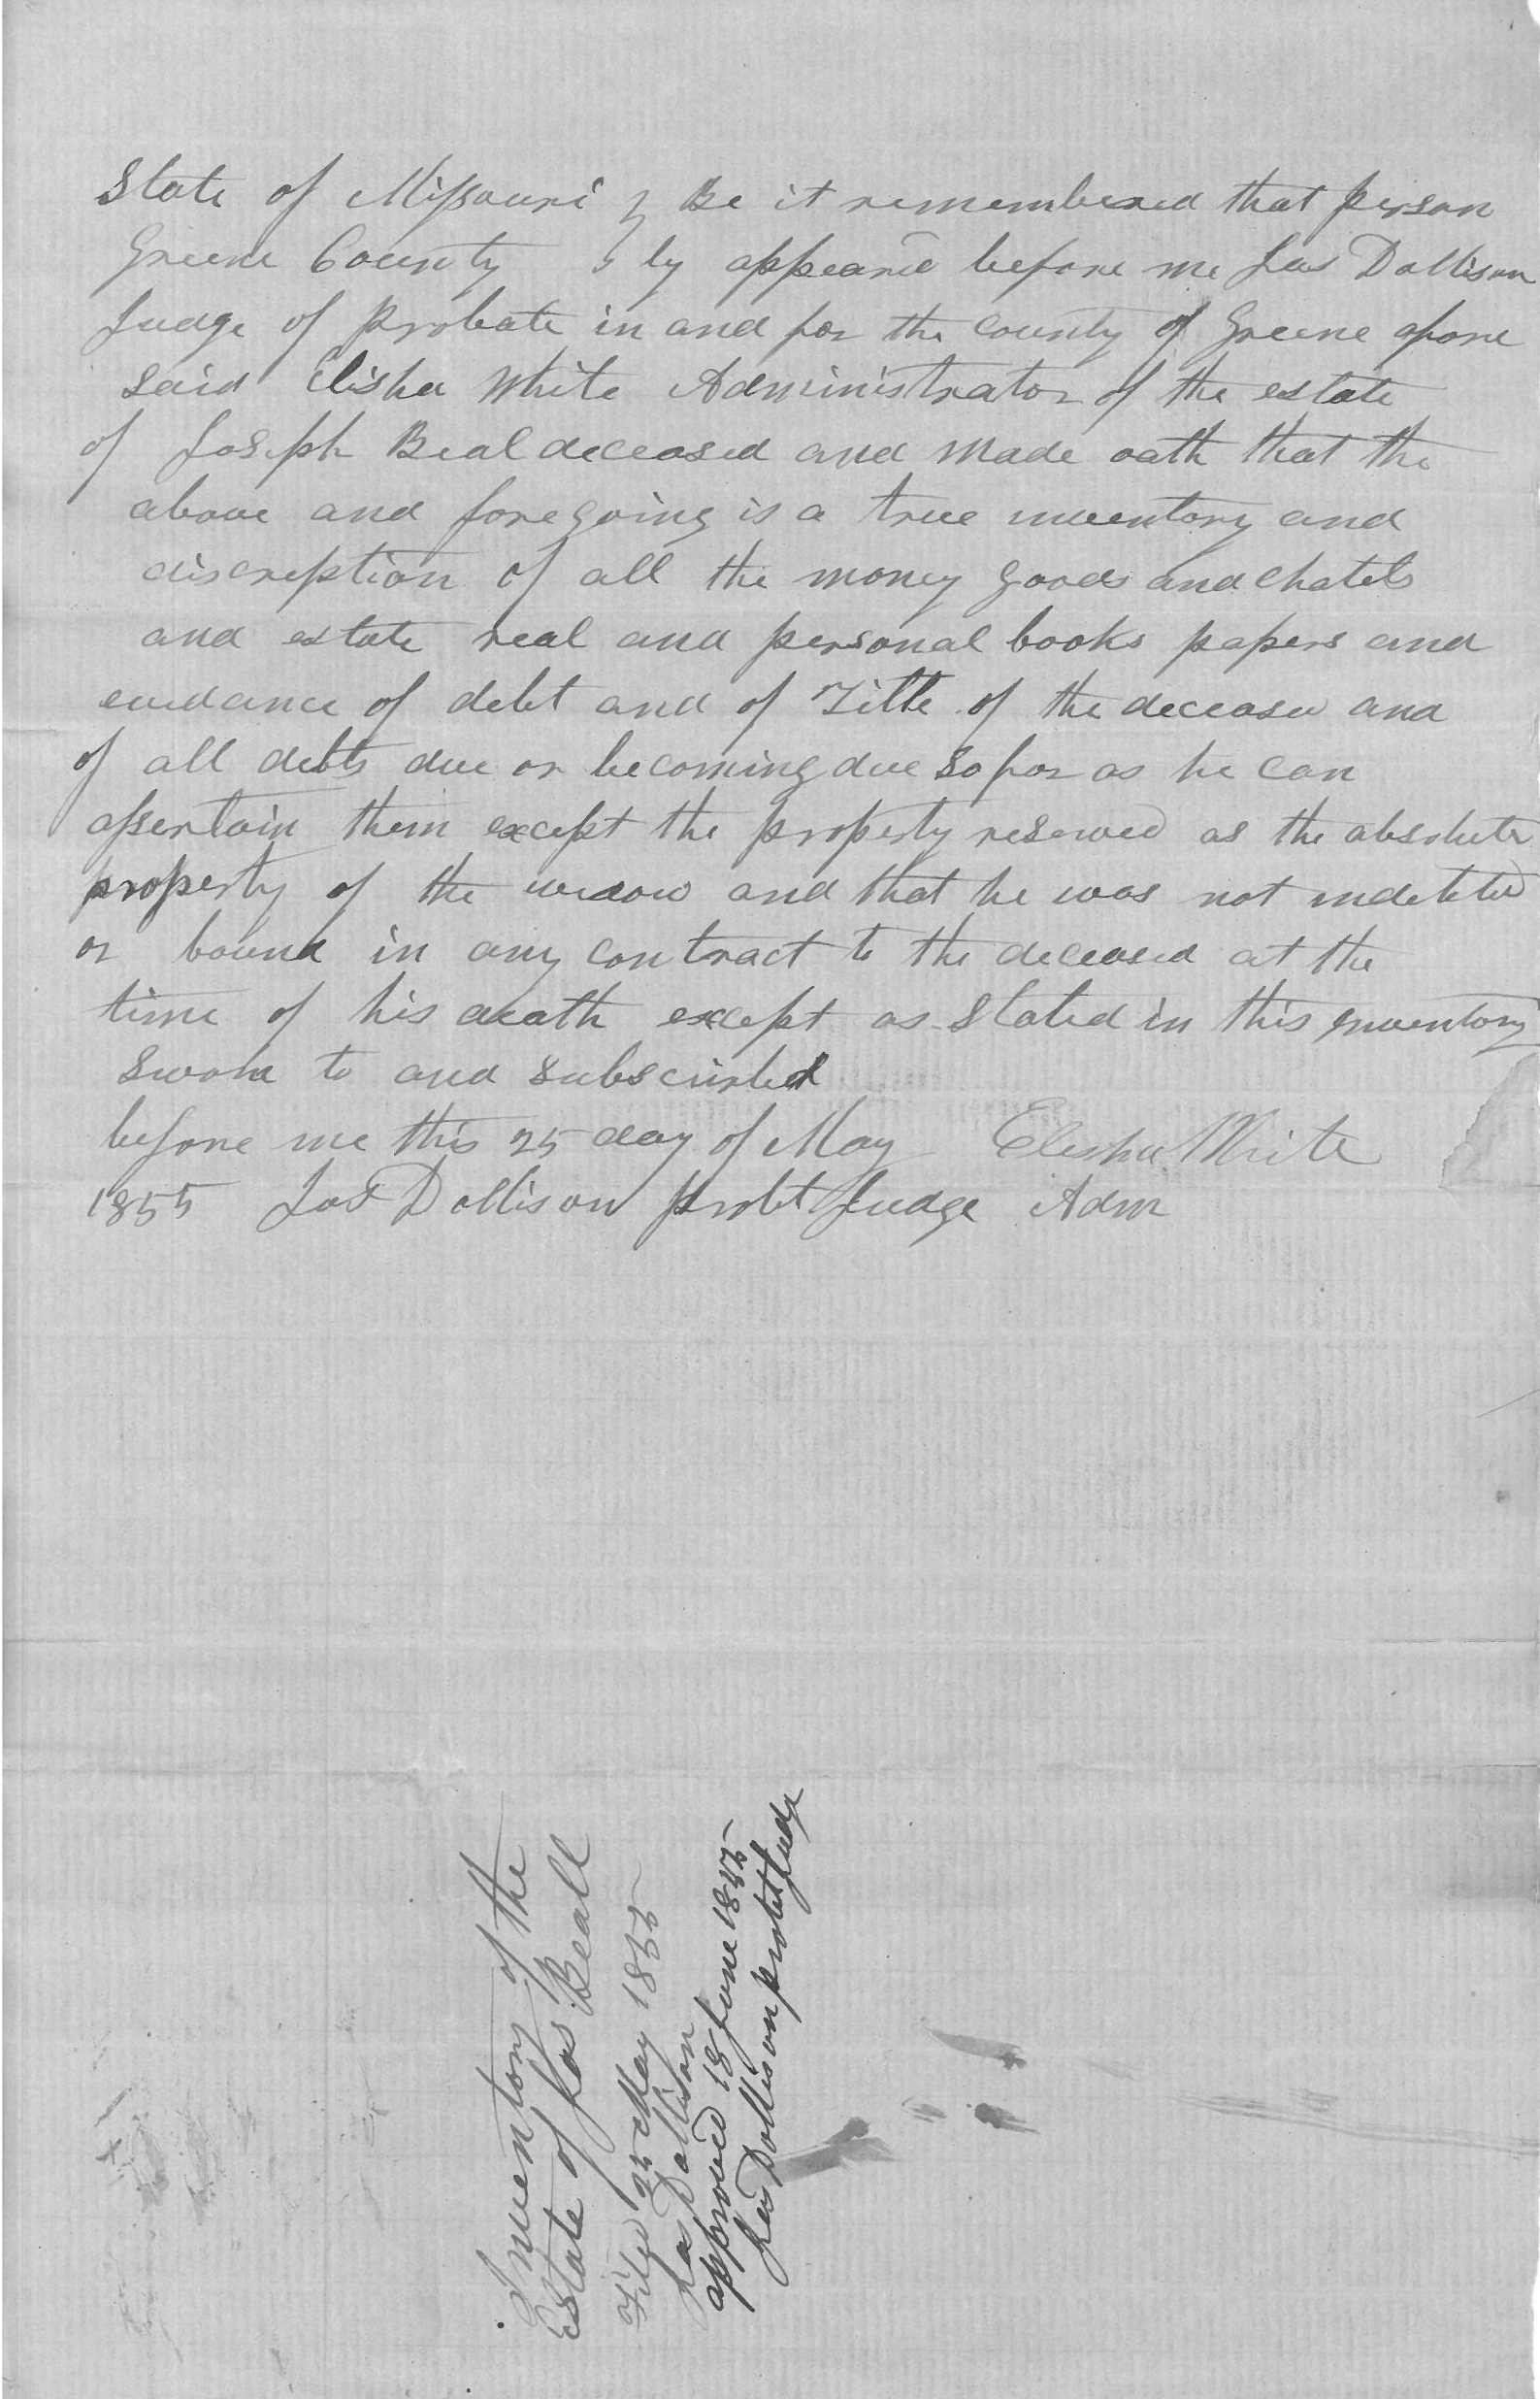 State of Missouri } Be it remembered that person
Greene County } ly appeared before me Jas Dollison
Judge of Probate in and for the County of Greene afore
said Elisha White Administrator of the estate
of Joseph Beal deceased and made oath that the
above and foregoing is a true inventory and
discreption of all the money goods and Chatels
and estate real and personal books papers and
evidance of debt and of Title of the deceased and
of all debts due or becoming due so far as he can
assertain them except the property reserved as the absolute
property of the widow and that he was not indebted
or bound in any contract to the deceased at the
time of his death except as stated in this inventory
Sworn to and subscribed
before me this 25 day of May Elisha White
1855 Jas Dollison probt Judge Adm
Inventory of the
Estate of Jas Beall
Filed 25 May 1855
Jas Dollison
approved 18 June 1855
Jas Dollison probt Judge